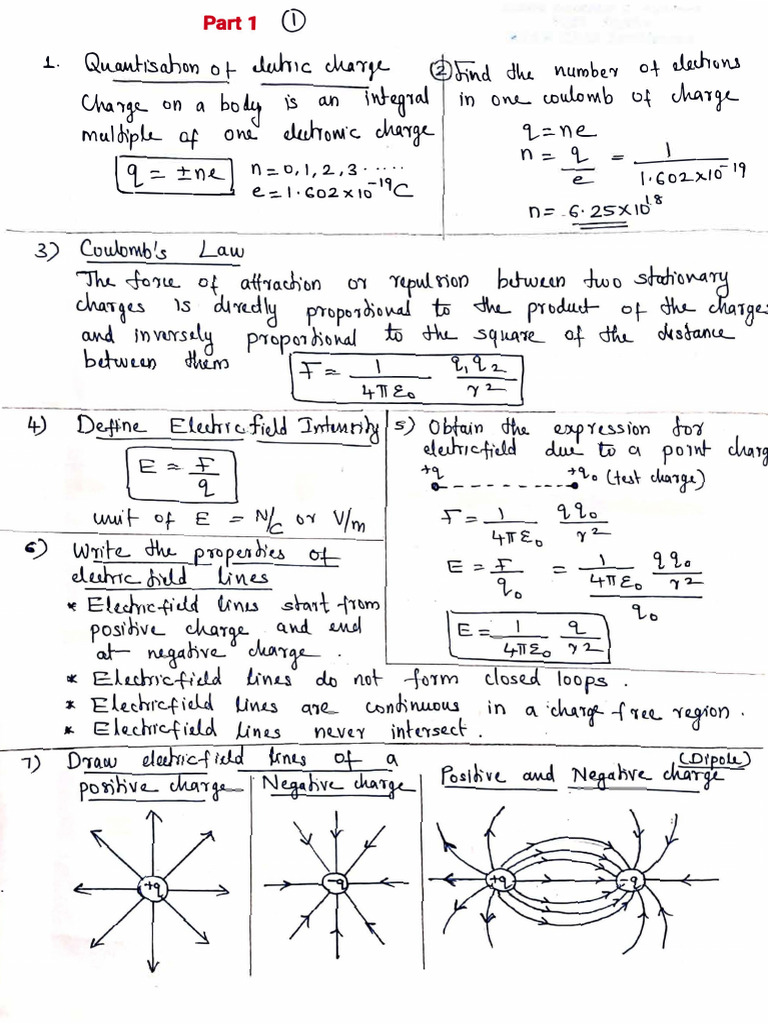 Part 1 ①
1. Quantisation of electric charge
Charge on a body is an integral
multiple of one electronic charge
q = ±ne n = 0, 1, 2, 3 ·····
e = 1.602×10⁻¹⁹C
② Find the number of electrons
in one coulomb of charge
q = ne
n = q/e = 1/1.602×10⁻¹⁹
n = 6.25×10¹⁸
3) Coulomb's Law
The force of attraction or repulsion between two stationary
charges is directly proportional to the product of the charges
and inversely proportional to the square of the distance
between them F = 1/4πε₀ q₁q₂/r²
4) Define Electric field Intensity
E = F/q
unit of E = N/C or V/m
5) Obtain the expression for
electricfield due to a point charg
+q +q₀ (test charge)
F = 1/4πε₀ qq₀/r²
E = F/q₀ = 1/4πε₀ qq₀/r² / q₀
E = 1/4πε₀ q/r²
6) Write the properties of
electric field lines
* Electricfield lines start from
positive charge and end
at negative charge.
* Electricfield lines do not form closed loops.
* Electricfield lines are continuous in a charge free region.
* Electricfield lines never intersect.
7) Draw electricfield lines of a
positive charge
Negative charge
(Dipole)
Positive and Negative charge
+q
-q
+q -q